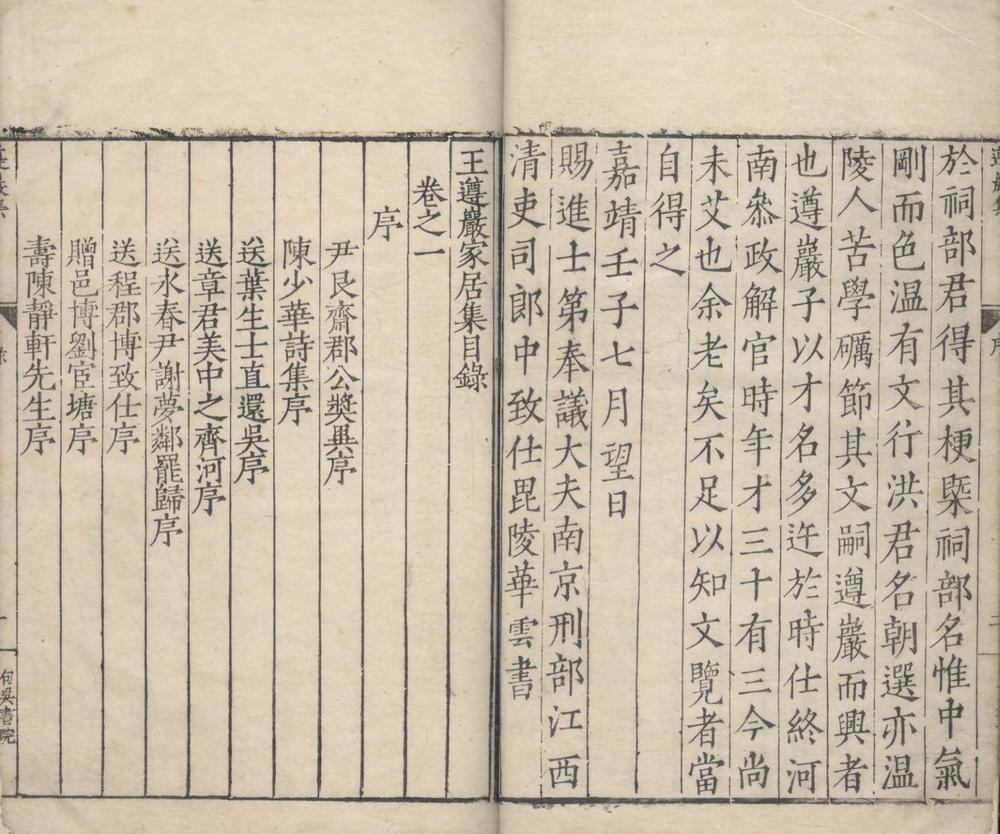 於祠部君得其梗槩祠部名惟中氣
剛而色溫有文行洪君名朝選亦溫
陵人苦學礪節其文嗣遵巖而興者
也遵巖子以才名多迕於時仕終河
南叅政解官時年才三十有三今尚
未艾也余老矣不足以知文覽者當
自得之
嘉靖壬子七月望日
賜進士第奉議大夫南京刑部江西
清吏司郎中致仕毘陵華雲書
王遵巖家居集目錄
卷之一
序
尹艮齋郡公奬異序
陳少華詩集序
送葉生士直還吳序
送章君美中之齊河序
送永春尹謝夢鄰罷歸序
送程郡博致仕序
贈邑博劉宦塘序
壽陳靜軒先生序
句吳書院